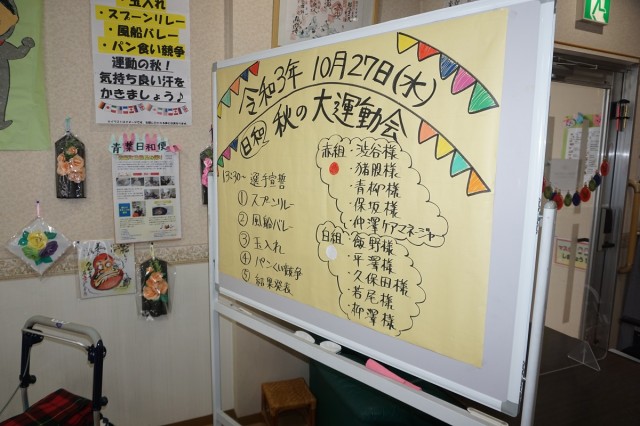 ・玉入れ
・スプーンリレー
・風船バレー
・パン食い競争
運動の秋！
気持ち良い汗を
かきましょう♪
青葉日和便
令和3年 10月27日(水)
日和 秋の大運動会
13:30〜 選手宣誓
① スプンリレー
② 風船バレー
③ 玉入れ
④ パンくい競争
⑤ 結果発表
赤組・渋谷様
・猪股様
・青柳様
・保坂様
・仲澤ケアマネージャー
白組・飯野様
・平澤様
・久保田様
・若尾様
・柳澤様